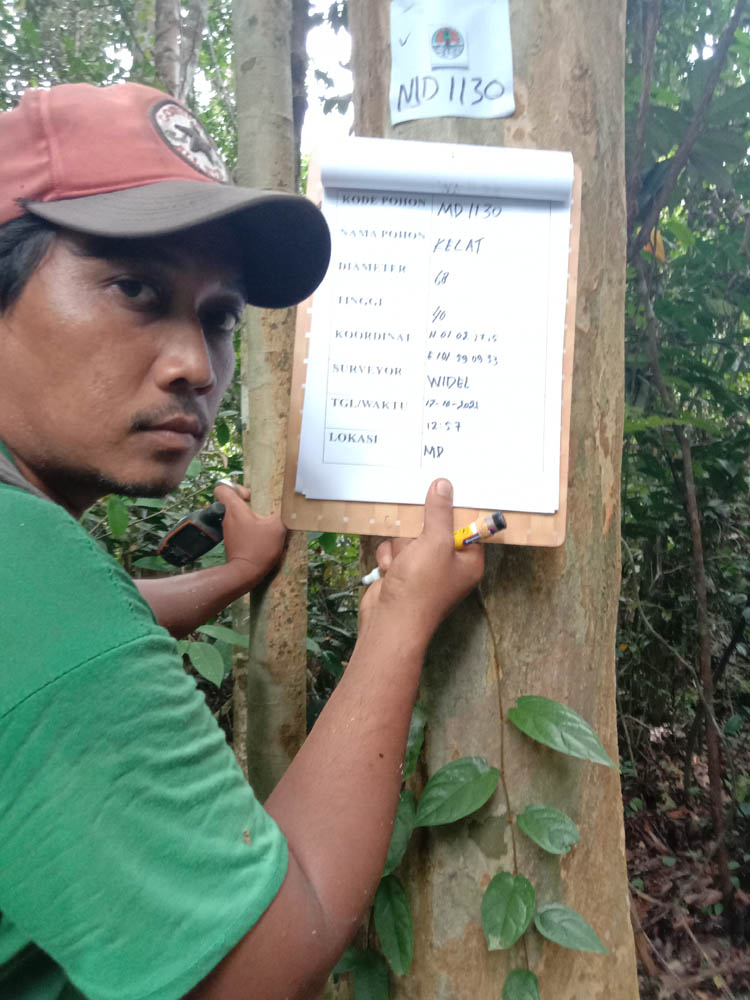 MD 1130
KODE POHON MD 1130
NAMA POHON KELAT
DIAMETER 68
TINGGI 40
KOORDINAT N 01 02 27,5
E 101 39 09.33
SURVEYOR WIDEL
TGL/WAKTU 17-10-2021
12:57
LOKASI MD